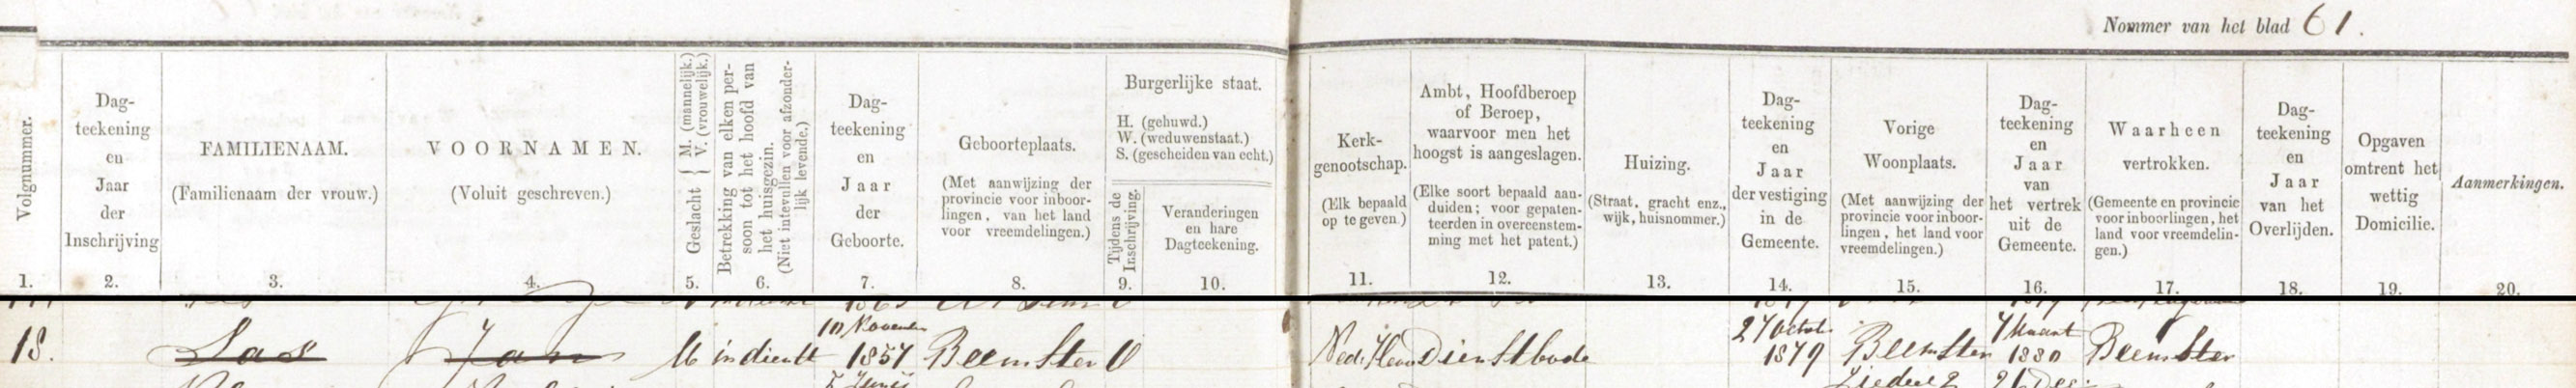 Nommer van het blad 61.
Volgnummer.
1.
Dag-
teekening
en
Jaar
der
Inschrijving
2.
FAMILIENAAM.
(Familienaam der vrouw.)
3.
VOORNAMEN.
(Voluit geschreven.)
4.
Geslacht { M. (mannelijk.) V. (vrouwelijk.)
5.
Betrekking van elken per-
soon tot het hoofd van
het huisgezin.
(Niet intevullen voor afzonder-
lijk levende.)
6.
Dag-
teekening
en
Jaar
der
Geboorte.
7.
Geboorteplaats.
(Met aanwijzing der
provincie voor inboor-
lingen, van het land
voor vreemdelingen.)
8.
Burgerlijke staat.
H. (gehuwd.)
W. (weduwenstaat.)
S. (gescheiden van echt.)
Tijdens de
Inschrijving.
9.
Veranderingen
en hare
Dagteekening.
10.
Kerk-
genootschap.
(Elk bepaald
op te geven.)
11.
Ambt, Hoofdberoep
of Beroep,
waarvoor men het
hoogst is aangeslagen.
(Elke soort bepaald aan-
duiden; voor gepaten-
teerden in overeenstem-
ming met het patent.)
12.
Huizing.
(Straat, gracht enz.,
wijk, huisnommer.)
13.
Dag-
teekening
en
Jaar
der vestiging
in de
Gemeente.
14.
Vorige
Woonplaats.
(Met aanwijzing der
provincie voor inboor-
lingen, het land voor
vreemdelingen.)
15.
Dag-
teekening
en
Jaar
van
het vertrek
uit de
Gemeente.
16.
Waarheen
vertrokken.
(Gemeente en provincie
voor inboorlingen, het
land voor vreemdelin-
gen.)
17.
Dag-
teekening
en
Jaar
van het
Overlijden.
18.
Opgaven
omtrent het
wettig
Domicilie.
19.
Aanmerkingen.
20.
18.
Las
Jan
M
indienst
10 November
1857
Beemster
O
Ned. Herv
Dienstbode
27 Octob.
1879
Beemster
7 Maart
1880
Beemster